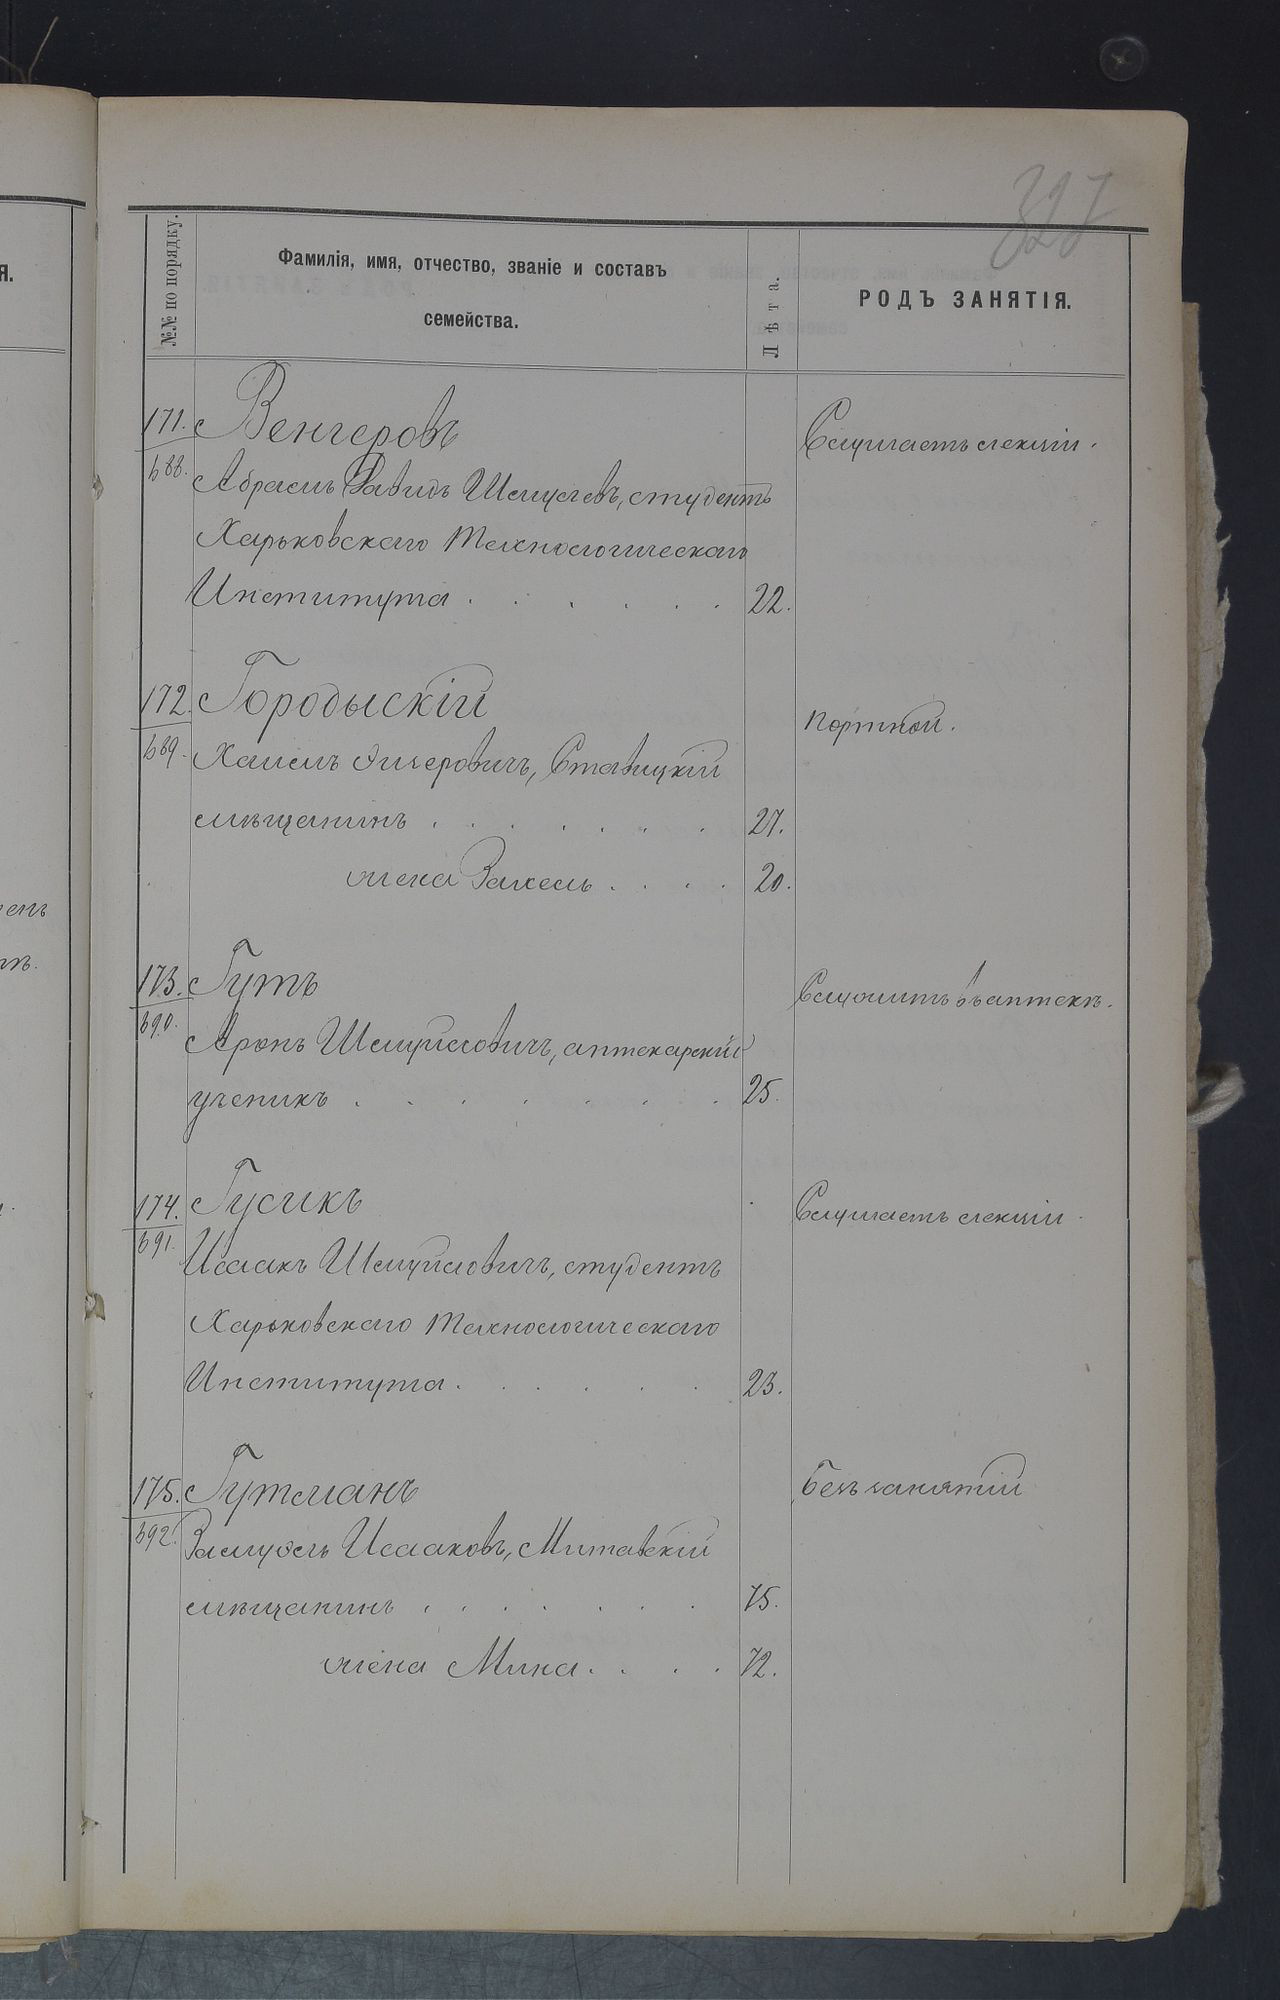 327
№№ по порядку.
Фамилія, имя, отчество, званіе и составъ
семейства.
Лѣта.
РОДЪ ЗАНЯТІЯ.
171. Венгеровъ
Слушаетъ лекціи.
688. Абрамъ Давидъ Шмулевъ, студентъ
Харьковскаго Технологическаго
Института . . . . . . 22.
172. Городыскій
портной.
689. Хаимъ Эшеровичъ, Ставицкій
мѣщанинъ . . . . . . 27.
жена Рахель . . . . 20.
173. Гутъ
Служитъ въ аптекѣ.
690. Аронъ Шмуйловичъ, аптекарскій
ученикъ . . . . . . . 25.
174. Гусикъ
Слушаетъ лекціи.
691. Исаакъ Шмуйловичъ, студентъ
Харьковскаго Технологическаго
Института . . . . . 23.
175. Гутманъ
безъ занятій
692. Исааковъ, Митавскій
мѣщанинъ . . . . . . 75.
жена Мина . . . . 72.